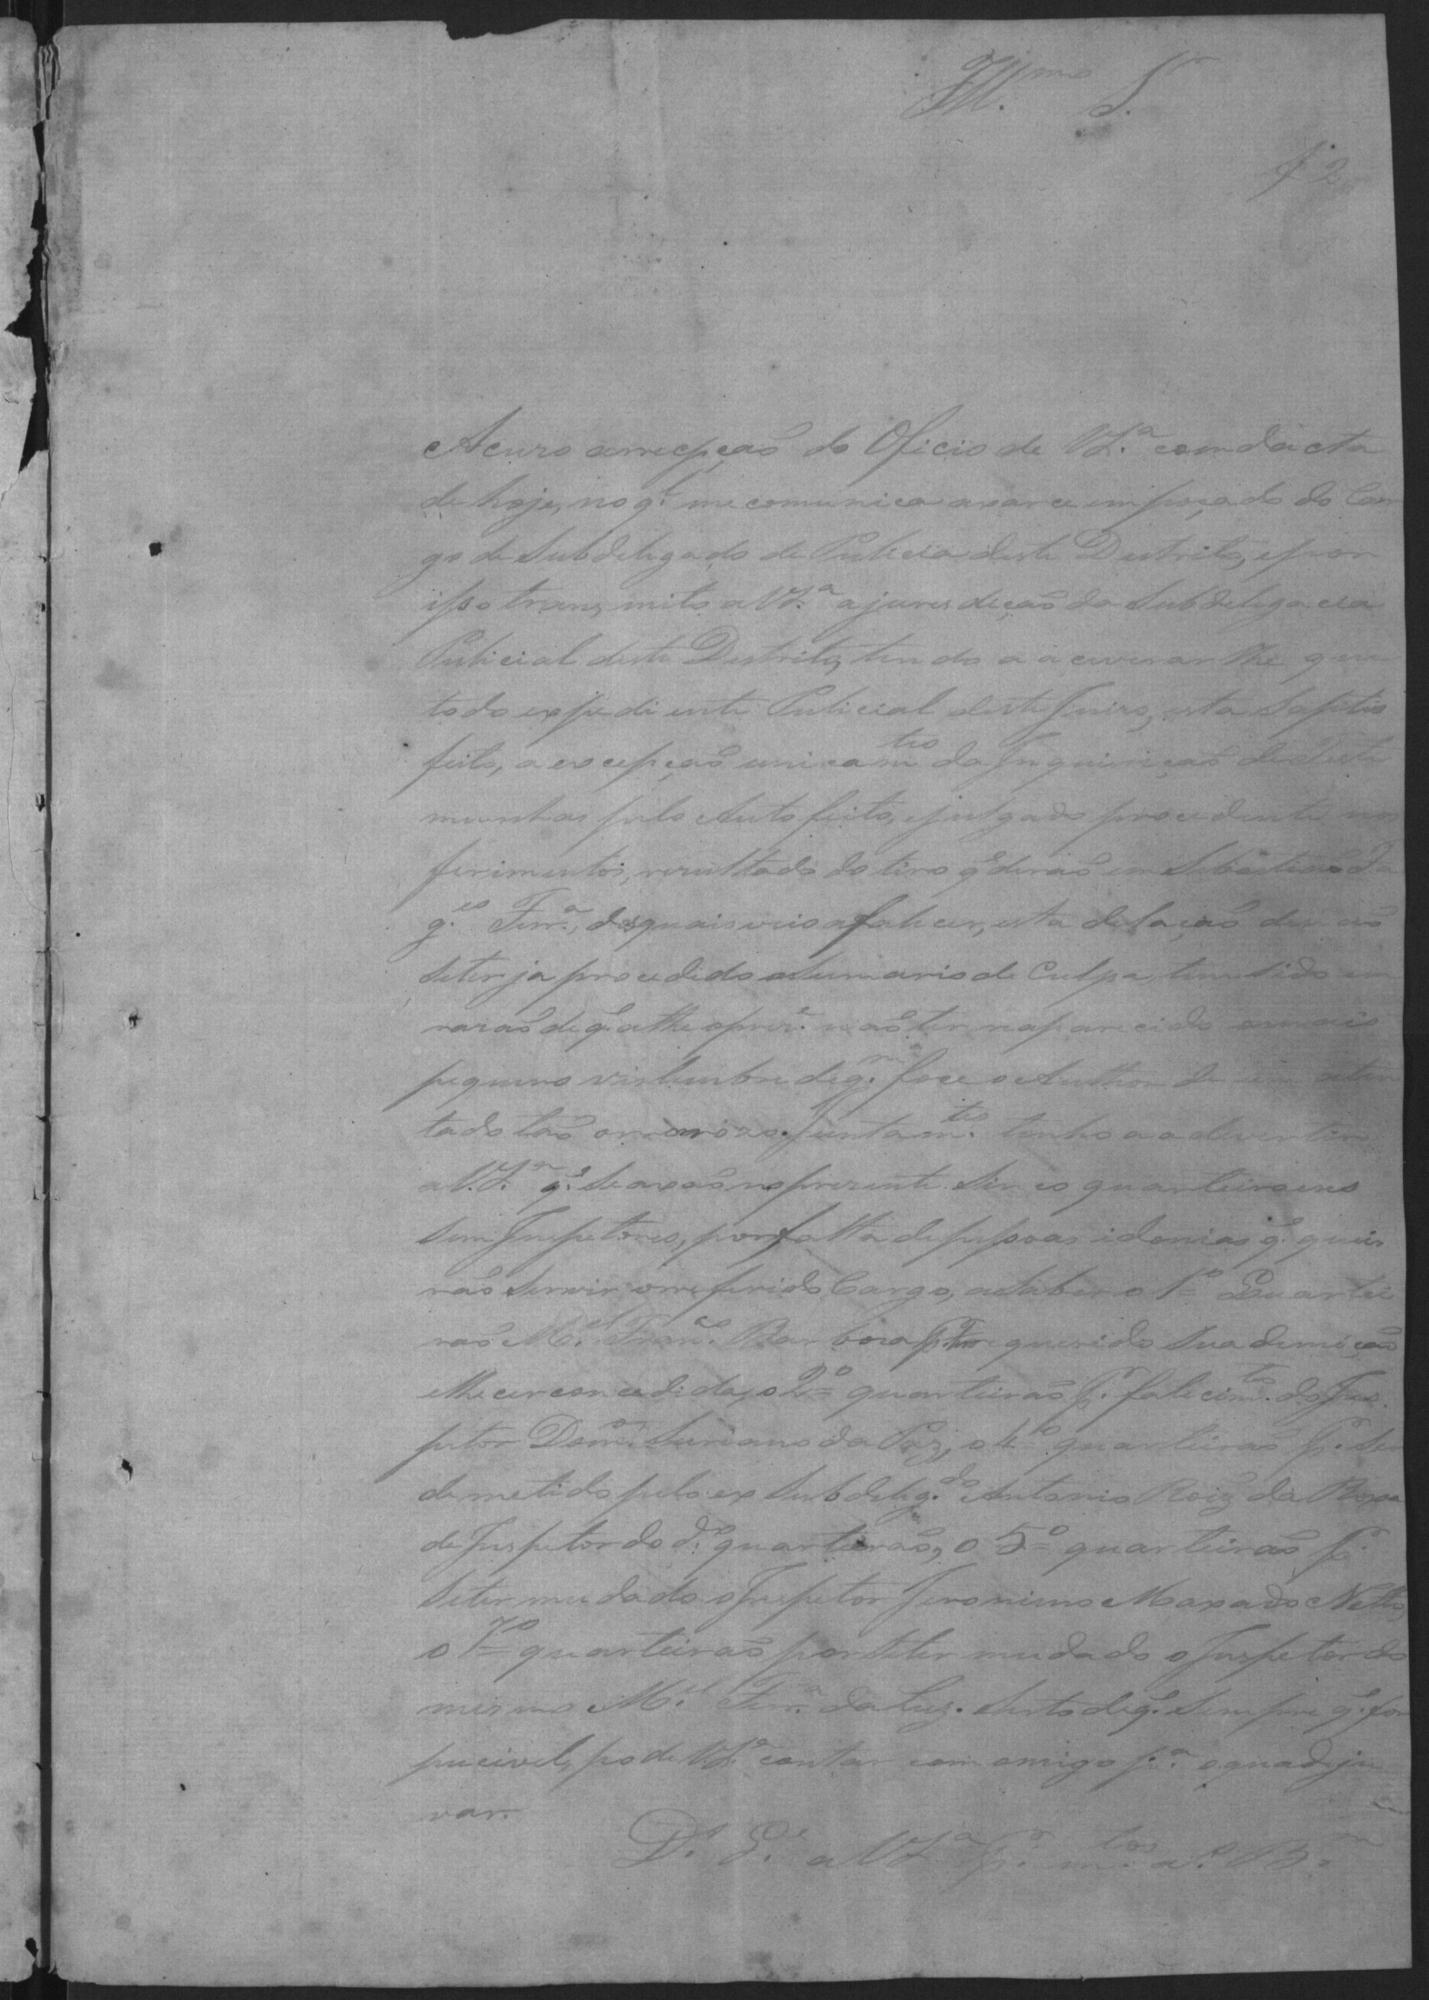 Ill.mo S.r
f 2
Acuzo arrecpção do Oficio de VS.ª com dacta
de hoje, no q.l me comunica axarce impoçado do Car
go de Subdelegado de Pulicia deste Destrito, e por
isso transmito a VS.ª a juresdição da Subdelegacia
Pulicial deste Destrito, tendo a acuverar lhe que
todo expediente Pulicial deste Juizo, esta Sastis
feito, a excepção unicam.te da Inquirição de teste
munhas pelo Auto feito, e julgado procedente nos
ferimentos, rezultado do tiro q' derão em Sebastião
Ferr.ª, dos quais veio a falicer, esta delação de não
se ter ja procedido a Sumario de Culpa, tem sido em
razão de q' athe o prez.e não ter naparecido o mais
pequeno vislumbre de q.m foce o Author de um aten
tado tão orrorozo. Juntam.te tenho a advertir
a V.S.ª q' Se axão no prezente Sinco quarteiroens
Sem Inspetores, por falta de pessoas idonias q' quei
rão Servir orreferido Cargo, a Saber o 1º Quartei
rão M.el Fran.co Barboza p.r ter requerido Sua demição
e lhe cer concedida, o 2º quarteirão p.r falicim.to do Ins
petor Dom.os Suriano da Paz, o 4º quarteirão p.r Ser
demetido pelo ex Subdeleg.do Antonio Roiz da Roxa
de Inspetor do d.o quarteirão, o 5º quarteirão p.r
Seter mudado o Inspetor Jeronimo Maxado Netto,
o 7º quarteirão por Seter mudado o Inspetor do
mesmo M.el Ferr.ª da Luz. Serto de q' Sempre q' for
pucivel, pode VS.ª contar com omigo p.ª oquadju
var.
D.s G.e a VS.ª p.r m.tos a.s